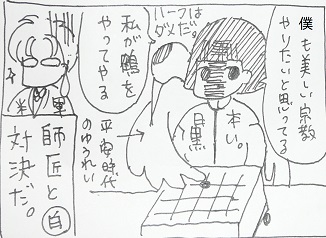 僕も美しい宗教
やりたいと思ってる
ハーフは
ダメだ。
私が鴨を
やってやる
平安時代
のゆうれい
本い。
目黒
師匠と
対決だ。
白